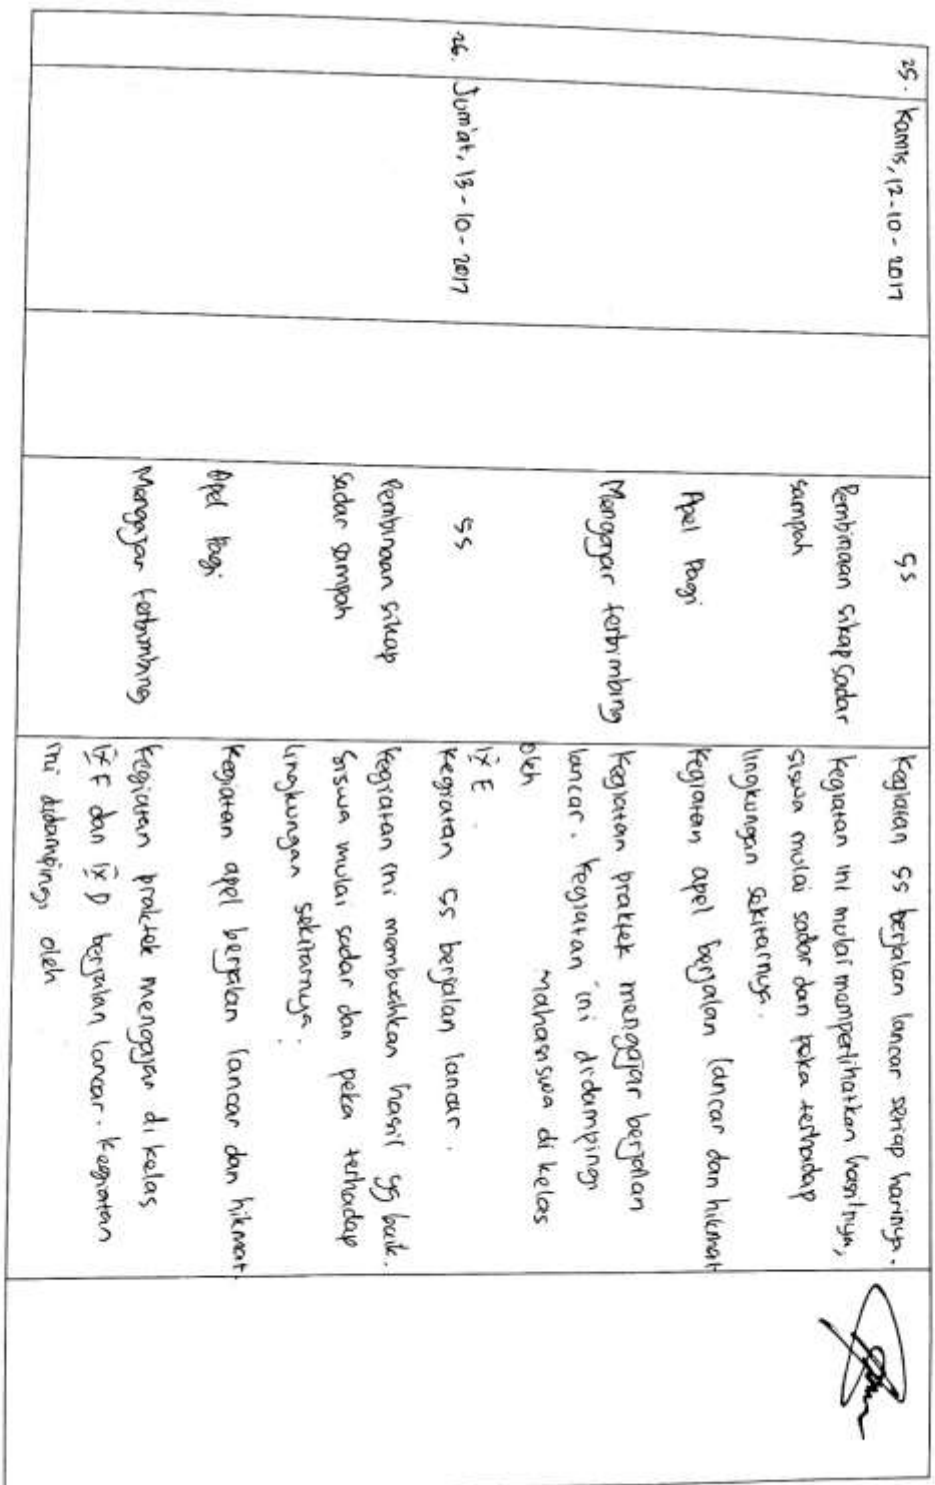 25. Kamis, 12-10-2017
5S
Kegiatan 5S berjalan lancar setiap harinya.
Pembinaan sikap sadar
sampah
Kegiatan ini mulai memperlihatkan hasilnya,
siswa mulai sadar dan peka terhadap
lingkungan sekitarnya.
Apel Pagi
Kegiatan apel berjalan lancar dan hikmat
Mengajar terbimbing
Kegiatan praktek mengajar berjalan
lancar. Kegiatan ini didampingi
oleh mahasiswa di kelas
IX E.
26. Jum'at, 13-10-2017
5S
Kegiatan 5S berjalan lancar.
Pembinaan sikap
sadar sampah
Kegiatan ini membuahkan hasil yg baik.
Siswa mulai sadar dan peka terhadap
lingkungan sekitarnya.
Apel Pagi
Kegiatan apel berjalan lancar dan hikmat.
Mengajar terbimbing
Kegiatan praktek mengajar di kelas
IX F dan IX D berjalan lancar. Kegiatan
ini didampingi oleh